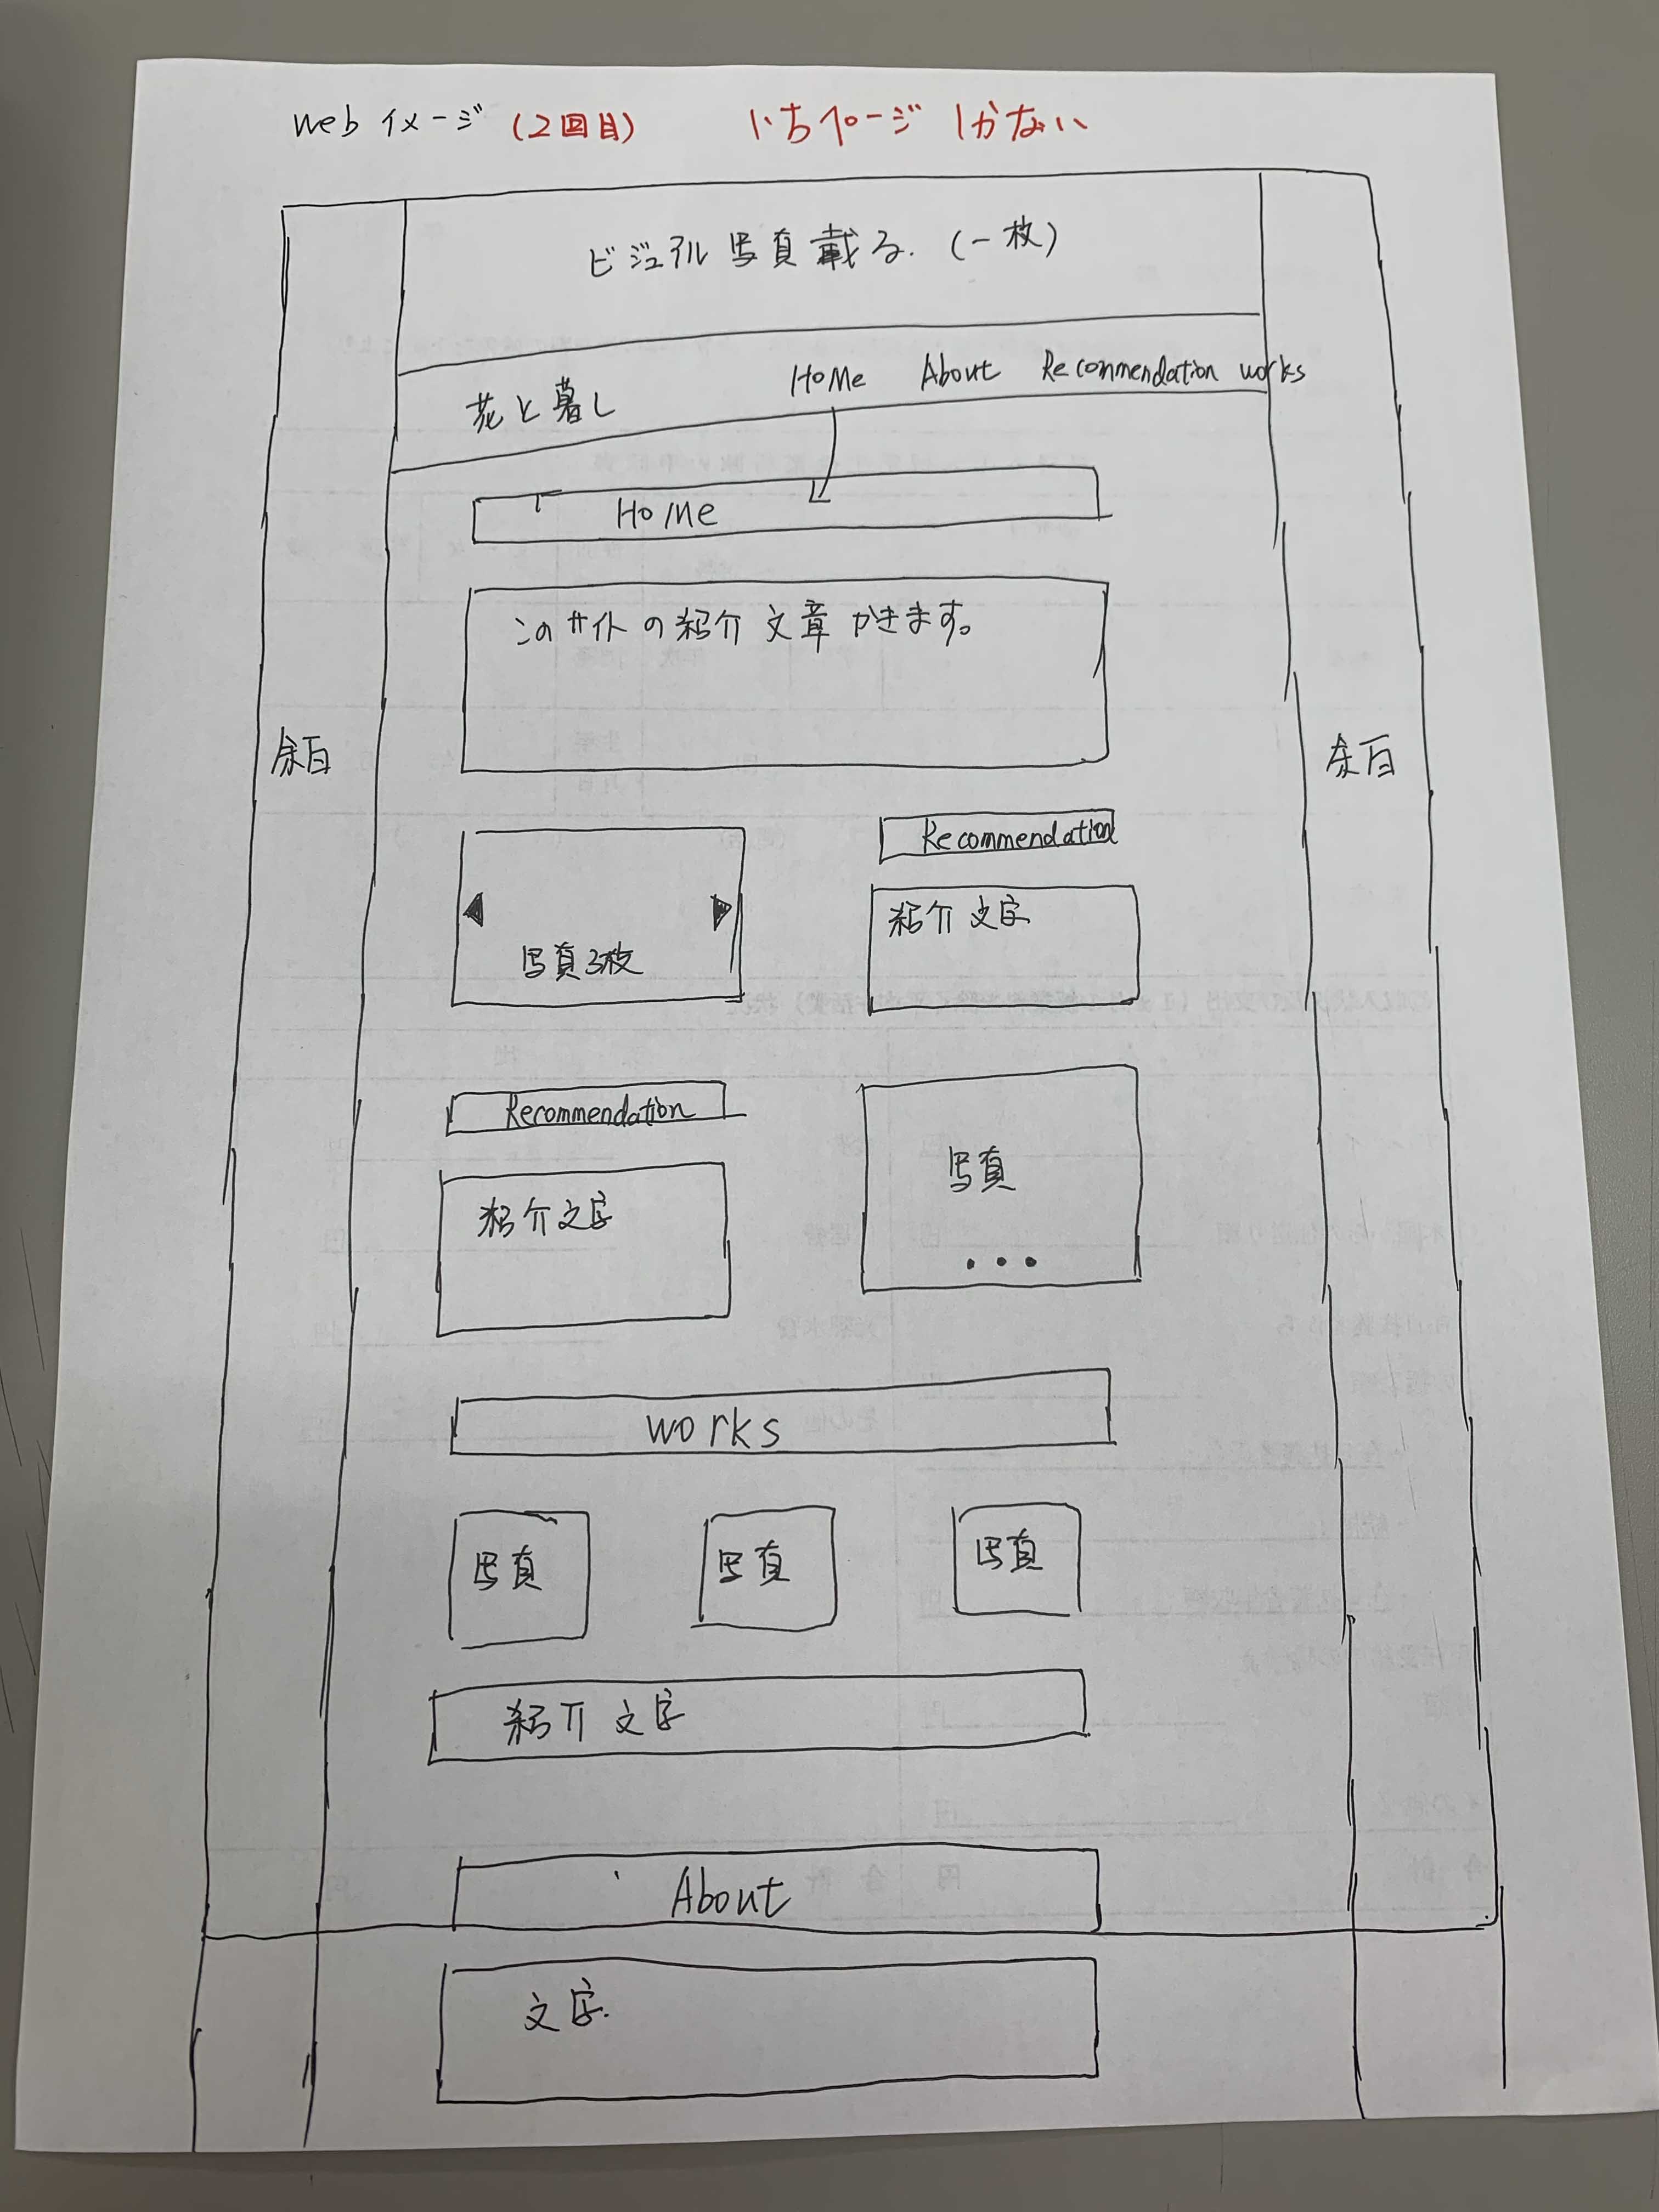 web イメージ (2回目) いちページ しかない
ビジュアル 写真 載る. (一枚)
花と暮し HOMe About Recommendation works
HOMe
このサイトの紹介 文章 かきます。
余白
余白
Recommendation
紹介 文字
写真3枚
Recommendation
紹介文字
写真
• • •
works
写真 写真 写真
紹介 文字
About
文字.